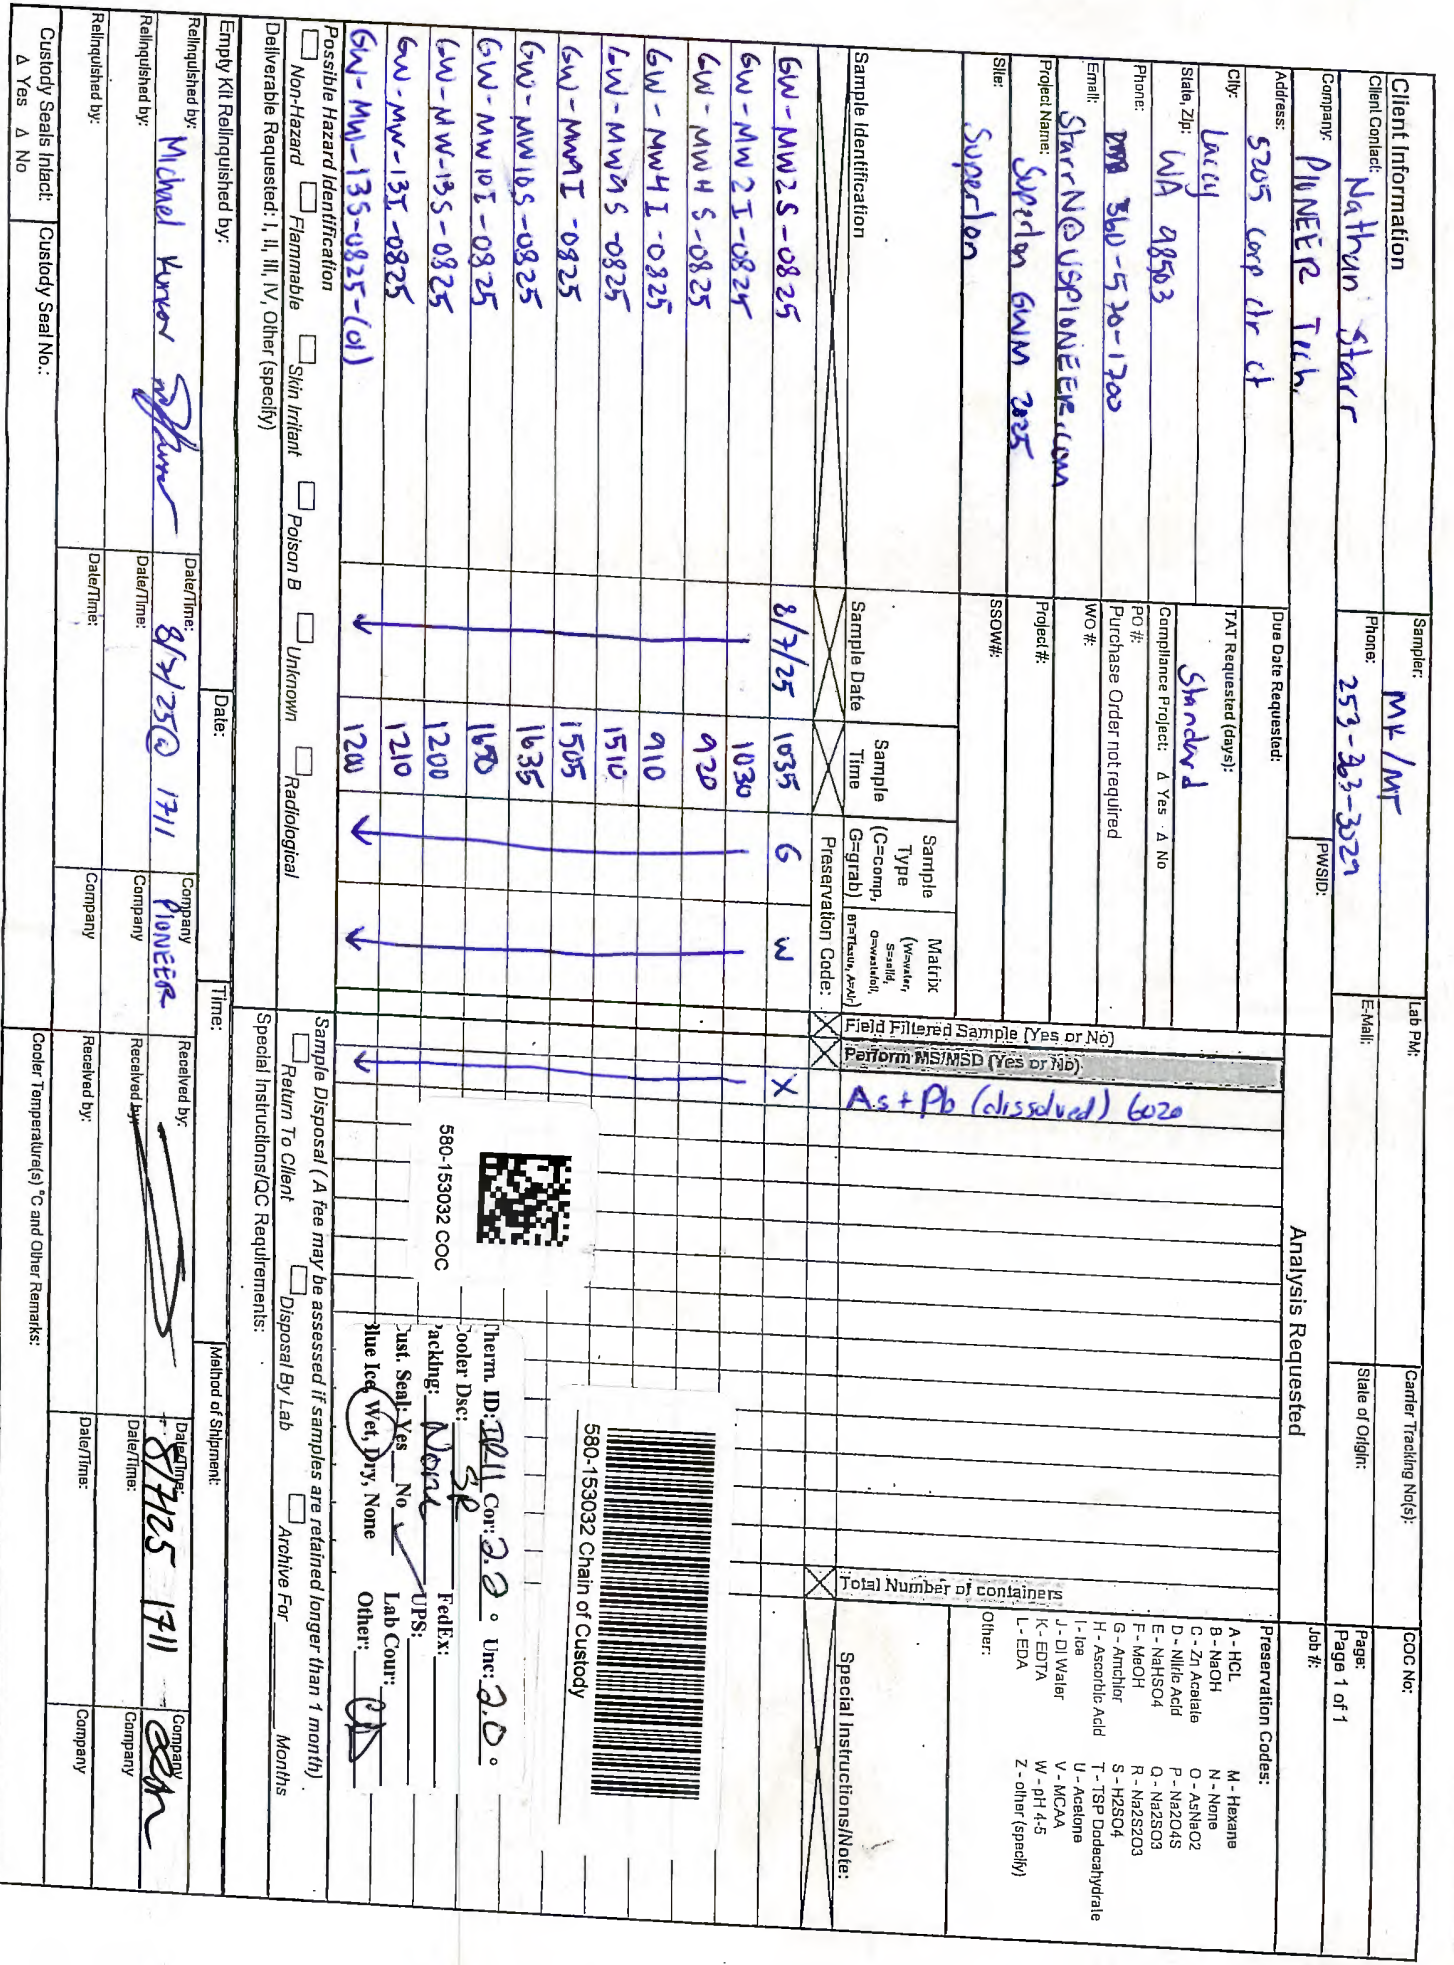 Client Information
Client Contact: Nathan Starr
Company: PIONEER Tech
Address: 5205 corp ctr ct
City: Lacey
State, Zip: WA 98503
Phone: 360-570-1700
Email: StarrN@USPIONEER.com
Project Name: Superlon GWM 2025
Site: Superlon
Sampler: MK/MT
Phone: 253-363-3029
PWSID:
Due Date Requested:
TAT Requested (days): Standard
Compliance Project: Δ Yes Δ No
PO #:
Purchase Order not required
WO #:
Project #:
SSOW#:
Lab PM:
E-Mail:
Carrier Tracking No(s):
State of Origin:
COC No:
Page:
Page 1 of 1
Job #:
Analysis Requested
Field Filtered Sample (Yes or No)
Perform MS/MSD (Yes or No)
As + Pb (dissolved) 6020
Total Number of containers
Preservation Codes:
A - HCL
B - NaOH
C - Zn Acetate
D - Nitric Acid
E - NaHSO4
F - MeOH
G - Amchlor
H - Ascorbic Acid
I - Ice
J - DI Water
K - EDTA
L - EDA
M - Hexane
N - None
O - AsNaO2
P - Na2O4S
Q - Na2SO3
R - Na2S2O3
S - H2SO4
T - TSP Dodecahydrate
U - Acetone
V - MCAA
W - pH 4-5
Z - other (specify)
Other:
Sample Identification
Sample Date
Sample Time
Sample Type (C=comp, G=grab)
Matrix (W=water, S=solid, O=waste/oil, BT=Tissue, A=Air)
Preservation Code:
Special Instructions/Note:
GW-MW2S-0825 8/7/25 1035 G W X
GW-MW2I-0825 1030
GW-MW4S-0825 920
GW-MW4I-0825 910
GW-MW9S-0825 1510
GW-MW9I-0825 1505
GW-MW10S-0825 1635
GW-MW10I-0825 1650
GW-MW-13S-0825 1200
GW-MW-13I-0825 1210
GW-MW-13S-0825-(01) 1200
580-153032 COC
580-153032 Chain of Custody
Therm. ID: IR11 Cor: 2.2 ° Unc: 2.0 °
Cooler Dsc: SR
Packing: None FedEx:
Cust. Seal: Yes No ✓ UPS:
Blue Ice, Wet, Dry, None Lab Cour:
Other:
Possible Hazard Identification
Non-Hazard Flammable Skin Irritant Poison B Unknown Radiological
Sample Disposal ( A fee may be assessed if samples are retained longer than 1 month)
Return To Client Disposal By Lab Archive For Months
Deliverable Requested: I, II, III, IV, Other (specify)
Special Instructions/QC Requirements:
Empty Kit Relinquished by:
Date:
Time:
Method of Shipment:
Relinquished by: Michael
Date/Time: 8/7/25 @ 1711
Company PIONEER
Received by:
Date/Time: 8/7/25 1711
Company
Relinquished by:
Date/Time:
Company
Received by:
Date/Time:
Company
Relinquished by:
Date/Time:
Company
Received by:
Date/Time:
Company
Custody Seals Intact:
Δ Yes Δ No
Custody Seal No.:
Cooler Temperature(s) °C and Other Remarks: